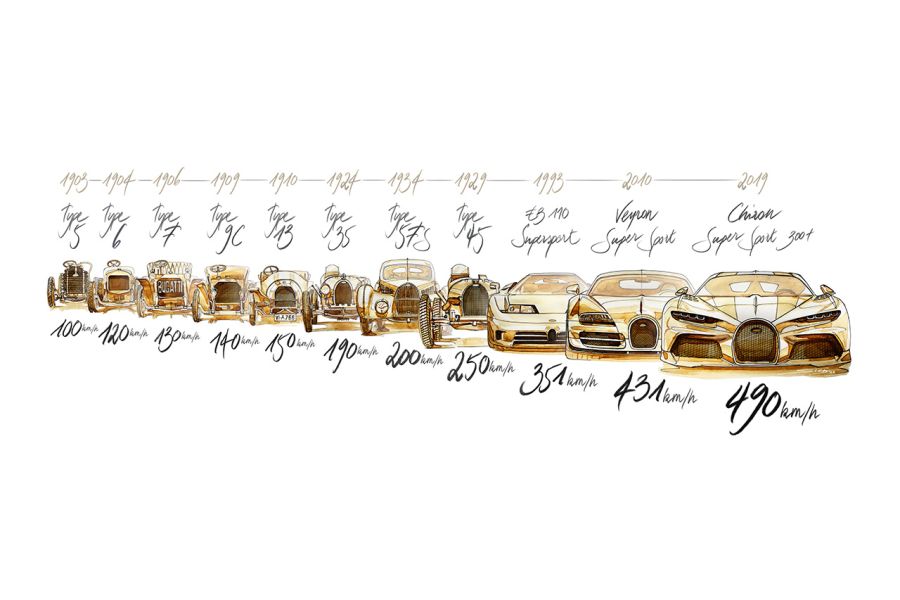 1903 1904 1906 1909 1910 1924 1934 1929 1993 2010 2019
Type Type Type Type Type Type Type Type EB 110 Veyron Chiron
5 6 7 9C 13 35 57S 45 Supersport Super Sport Super Sport 300+
BUGATTI
100 km/h 120 km/h 130 km/h 140 km/h 150 km/h 190 km/h 200 km/h 250 km/h 351 km/h 431 km/h 490 km/h